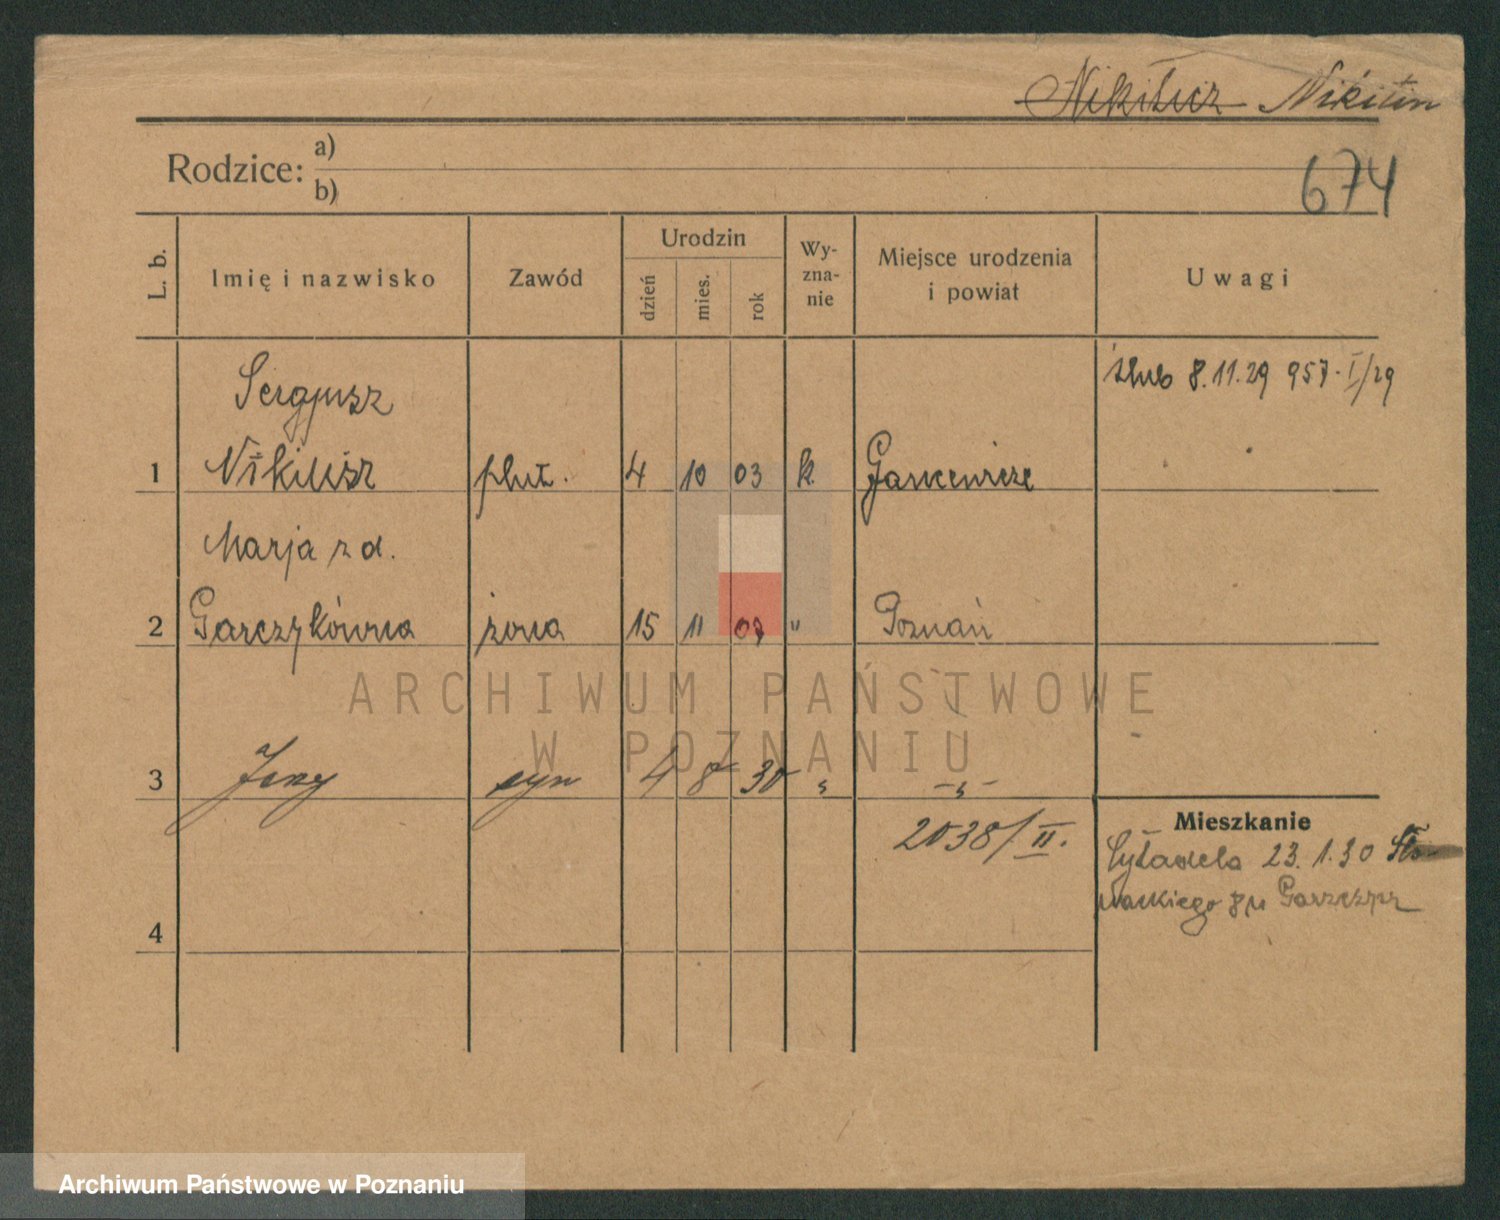 Nikiticz Nikitin
Rodzice: a)
b)
674
L. b.
Imię i nazwisko
Zawód
Urodzin
dzień
mies.
rok
Wy-
zna-
nie
Miejsce urodzenia
i powiat
Uwagi
Sergjusz
ślub 8.11.29 957·I/29
1 plut. 4 10 03 k.
Marja z d.
2 Garczykówna żona 15 11 07 " Poznań
ARCHIWUM PAŃSTWOWE
W POZNANIU
3 Jerzy syn 4 8 30 " -"-
Mieszkanie
2038/II.
Cytadela 23.1.30 Sło-
wackiego
4
Archiwum Państwowe w Poznaniu